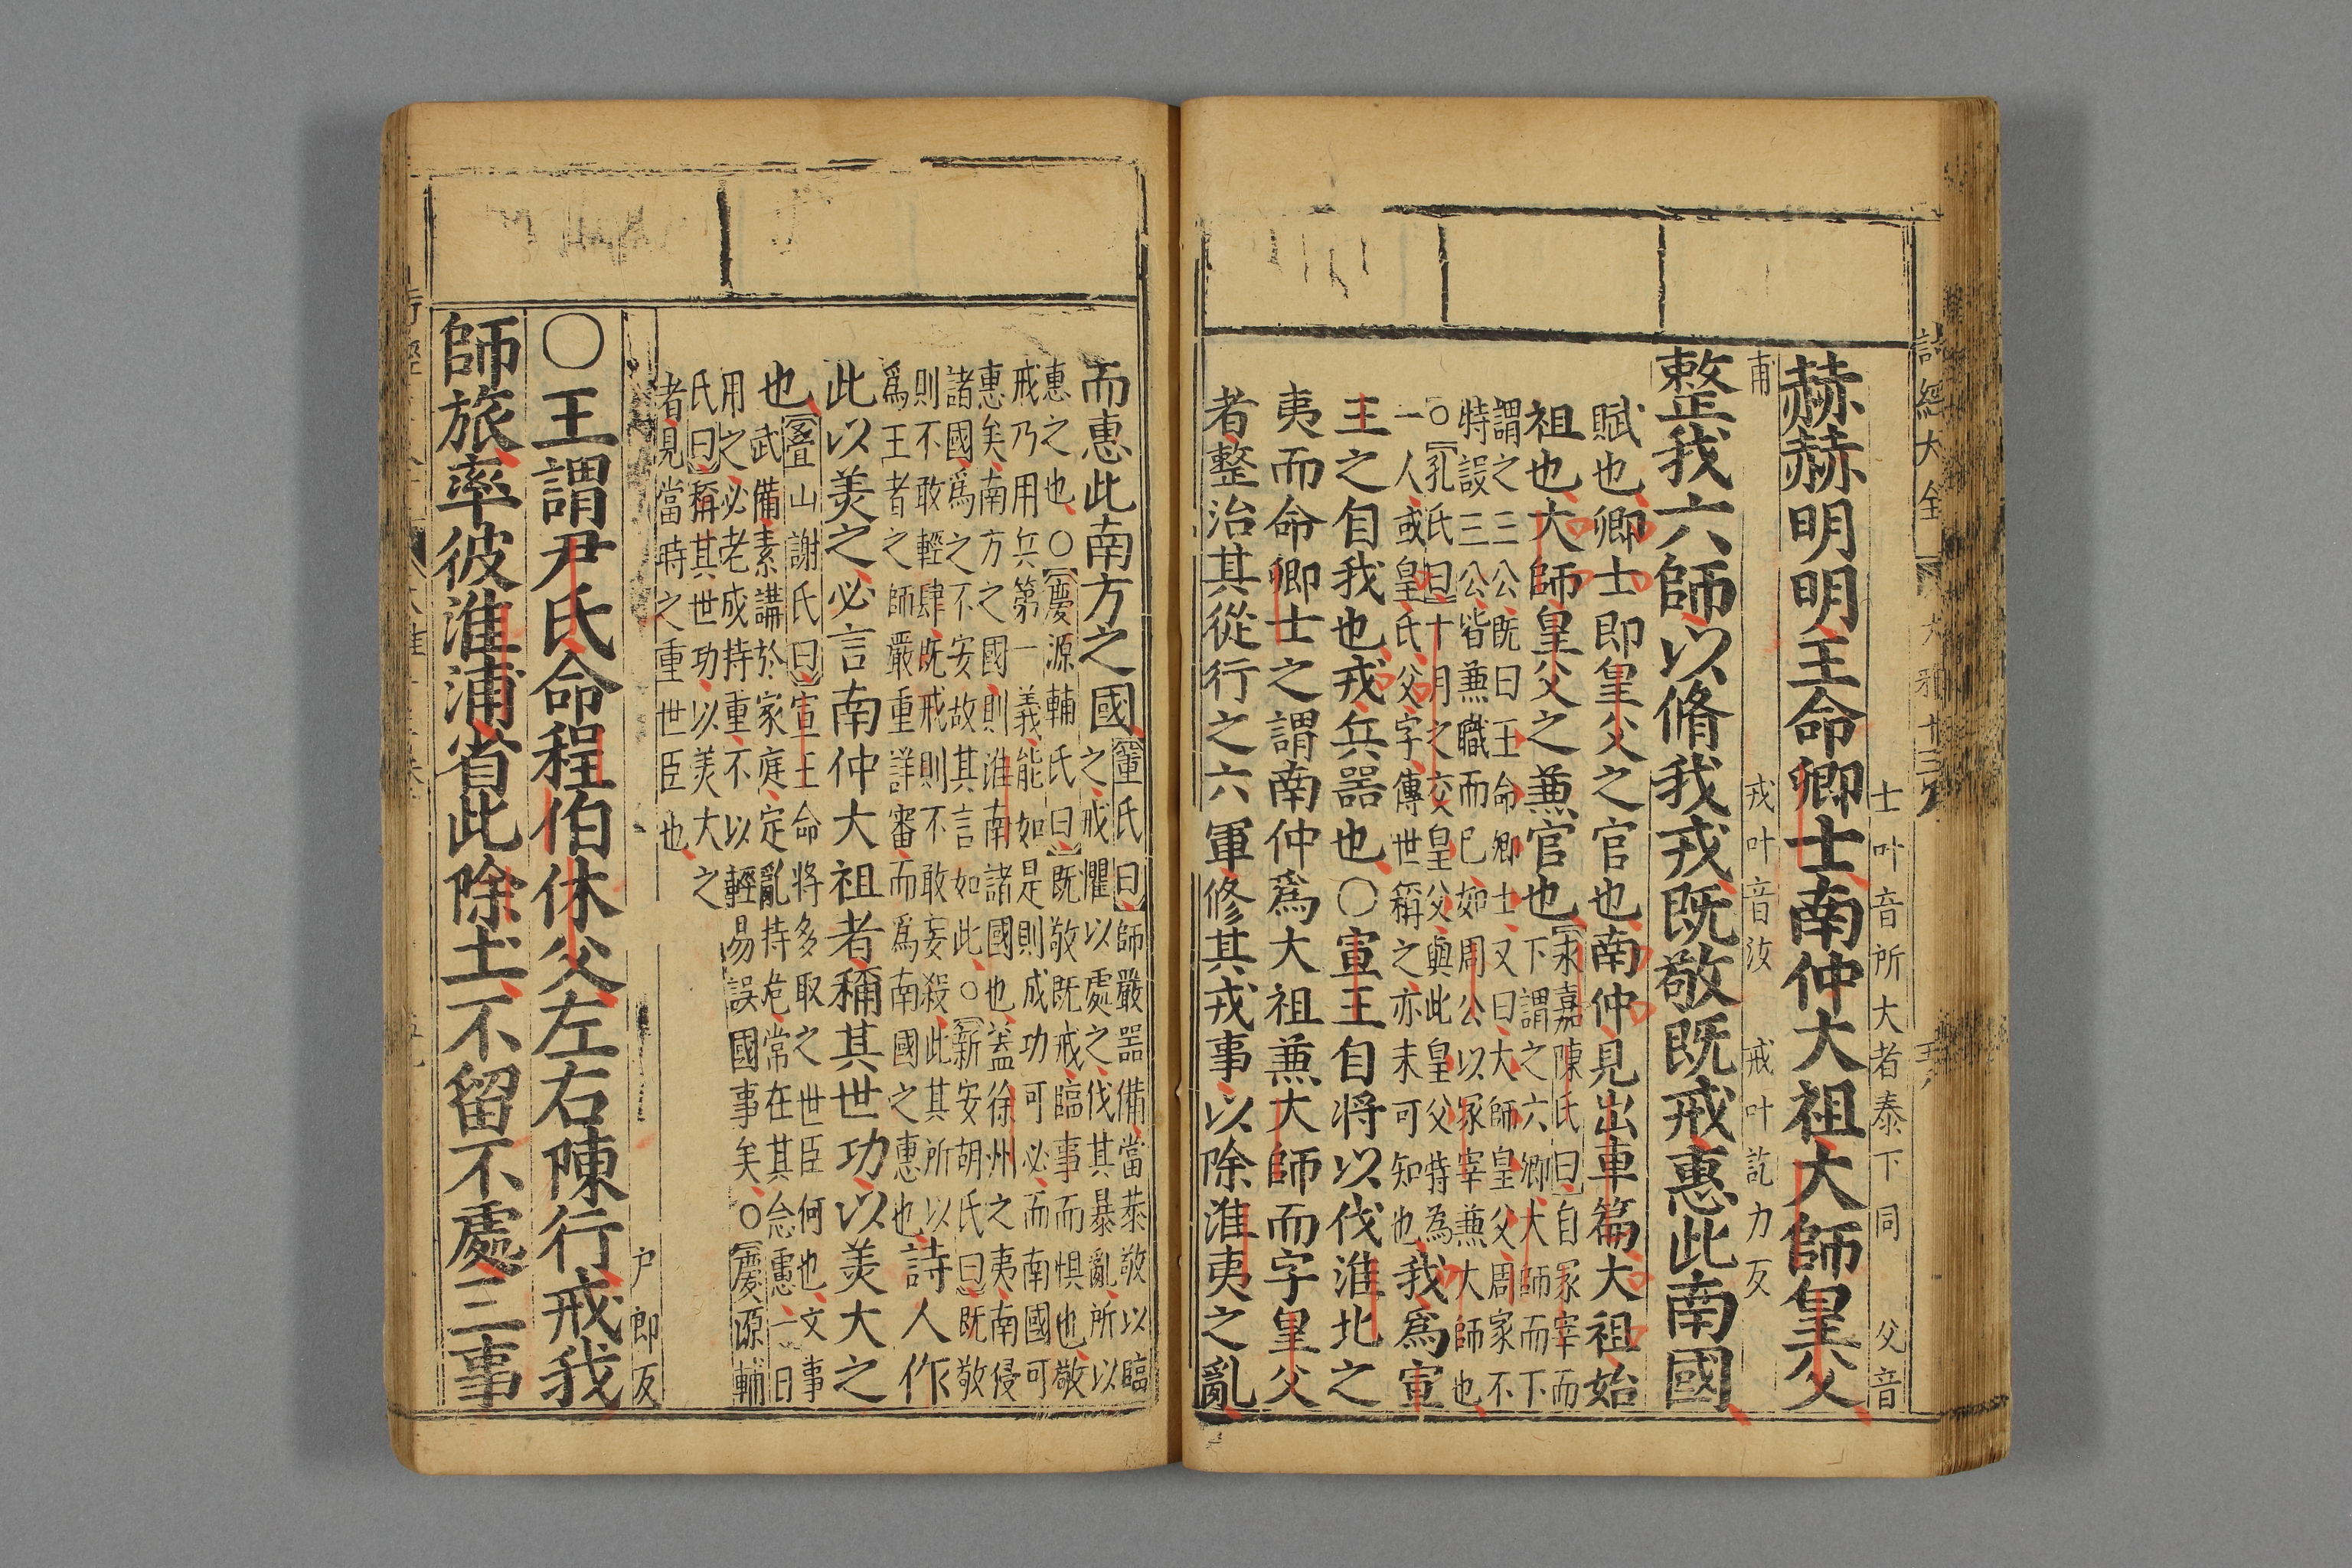 詩經大全
士叶音所大者泰下同 父音
赫赫明明王命卿士南仲大祖大師皇父
甫 戎叶音汝 戒叶訖力反
整我六師以脩我戎既敬既戒惠此南國
賦也卿士即皇父之官也南仲見出車篇大祖始
祖也大師皇父之兼官也永嘉陳氏曰自冢宰而
下謂之六卿大師而下
謂之三公既曰王命卿士又曰大師皇父周家不
特設三公皆兼職而已如周公以冢宰兼大師也
○孔氏曰十月之交皇父與此皇父特為
一人或皇氏父字傳世稱之亦未可知也
我爲宣
王之自我也戎兵器也○宣王自将以伐淮北之
夷而命卿士之謂南仲爲大祖兼大師而字皇父
者整治其從行之六軍修其戎事以除淮夷之亂
而惠此南方之國董氏曰師嚴器備當恭敬以臨
之戒懼以處之伐其暴亂所以
惠之也○慶源輔氏曰既敬既戒臨事而惧也敬
戒乃用兵第一義能如是則成功可必而南國可
惠矣南方之國則淮南諸國也蓋徐州之夷南侵
諸國爲之不安故其言如此○新安胡氏曰既敬
則不敢輕肆既戒則不敢妄殺此其所以
爲王者之師嚴重詳審而爲南國之惠也
詩人作
此以美之必言南仲大祖者稱其世功以美大之
也疊山謝氏曰宣王命将多取之世臣何也文事
武備素講於家庭定亂持危常在其念慮一日
用之必老成持重不以輕易誤國事矣○慶源輔
氏曰稱其世功以美大之
者見當時之重世臣也
戸郎反
○王謂尹氏命程伯休父左右陳行戒我
師旅率彼淮浦省此除土不留不處三事